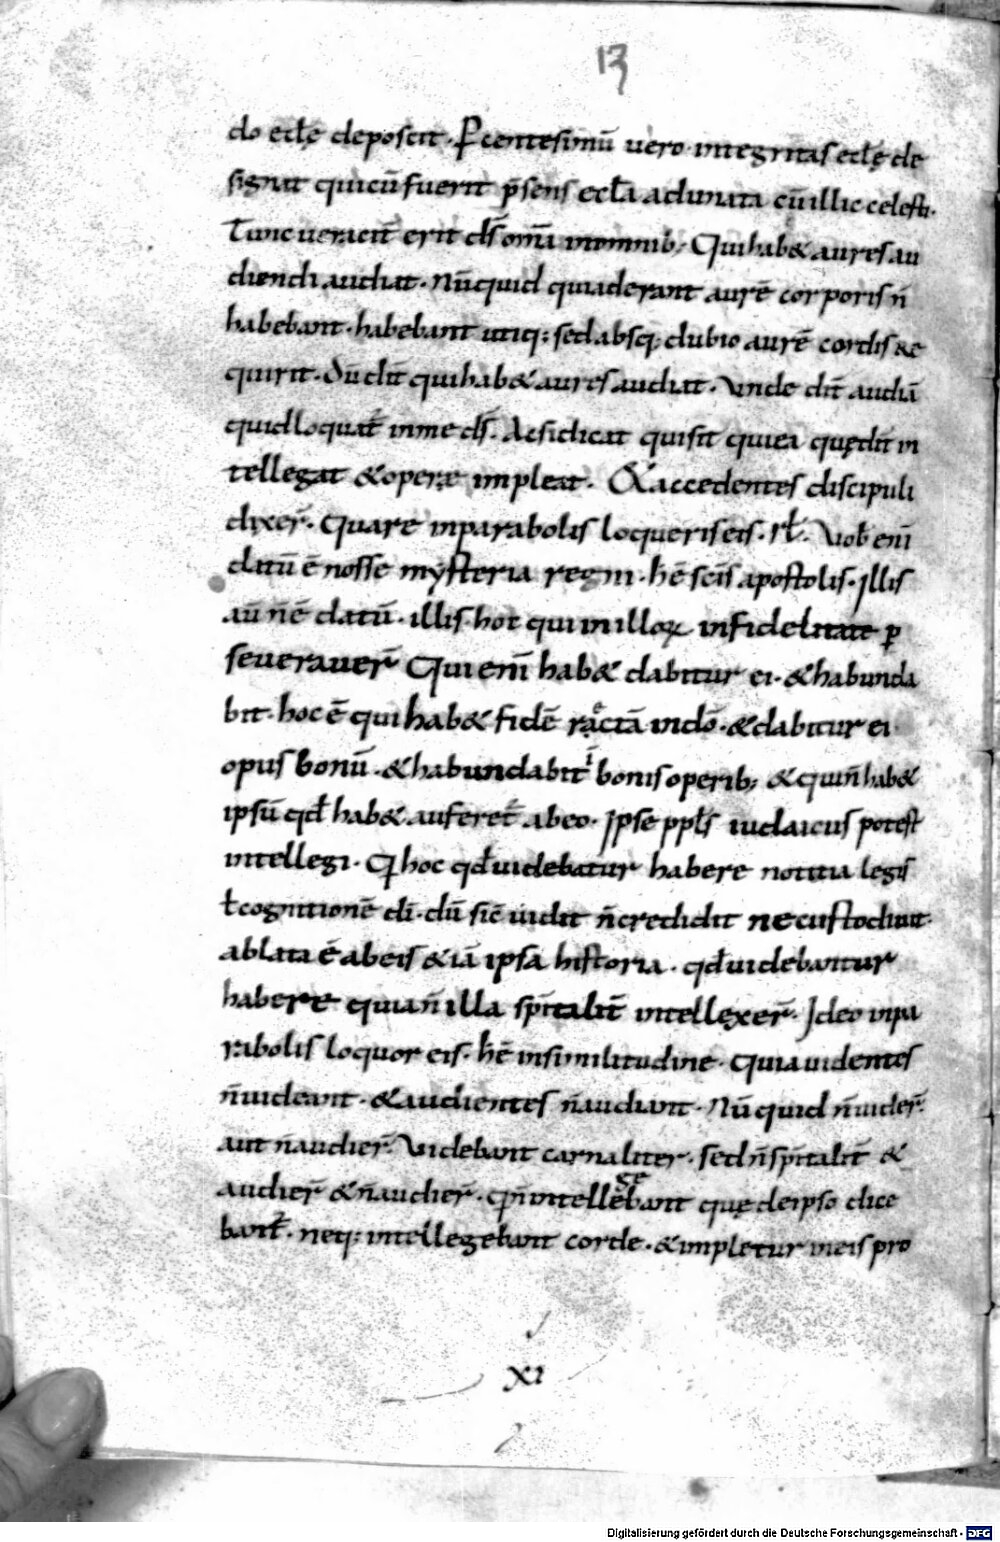 13
do eclę deposcit. P centesimū uero integritas eclę de
signat quicū fuerit p̄sens eccla adunata cū illic celesti.
Tunc ueracit̄ erit ds̄ omā inomnib; Qui hab& aures au
diendi audiat. Nūquid quia deerant aurē corporis n̄
habebant. habebant utiq; sed absq; dubio aurē cordis &
quirit. Dū dīt qui hab& aures audiat. Unde dīt audiā
quid loquat̄ inme ds̄. Acsi dicat qui sit quiea quę dīt in
tellegat & operæ impleat. & accedentes discipuli
dixer̄. Quare inparabolis loqueris eis. Uob eni
datū ē nosse mẏsteria regni. hē scīs apostolis. Illis
aū nē datū. illis hoc qui inilloꝝ infidelitate ꝑ
seuerauer̄ Qui enī hab& dabitur ei. & habunda
bit. hoc ē qui hab& fidē ręctā indō. & dabitur ei
opus bonū. & habundabit i bonis operib; & qui n̄ hab&
ipsū qđ hab& auferet̄ abeo. Ipse ppl̄s iudaicus potest
intellegi. Q hoc qđ uidebatur habere notitia legis
ł cognitionē dī. dū sic̄ uidit n̄ credidit ne custodiuit.
ablata ē abeis & iā ipsā historia. qđ uidebantur
habere quia n̄ illa sp̄italit̄ intellexer̄. Ideo inpa
rabolis loquor eis. hē insimilitudine. Quia uidentes
n̄ uideant. & audientes n̄ audiant. Nū quid n̄ uider̄.
aut n̄ audier̄. Uidebant carnaliter. sed n̄ sp̄italit̄ &
audier̄ & n̄ audier̄. qn̄ intellegebant quę deipso dice
bant̄. neq; intellegebant corde. & impletur ineis pro
XI
Digitalisierung gefördert durch die Deutsche Forschungsgemeinschaft - DFG